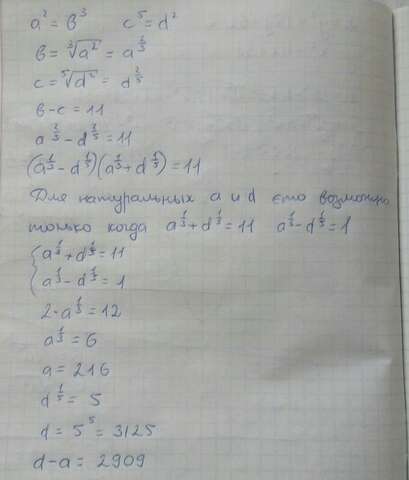 a² = b³ c⁵ = d²
b = ∛a² = a^(2/3)
c = ⁵√d² = d^(2/5)
b - c = 11
a^(2/3) - d^(2/5) = 11
(a^(1/3) - d^(1/5))(a^(1/3) + d^(1/5)) = 11
Для натуральных a и d ето возможно
только когда a^(1/3) + d^(1/5) = 11 a^(1/3) - d^(1/5) = 1
{a^(1/3) + d^(1/5) = 11
a^(1/3) - d^(1/5) = 1
2·a^(1/3) = 12
a^(1/3) = 6
a = 216
d^(1/5) = 5
d = 5⁵ = 3125
d - a = 2909